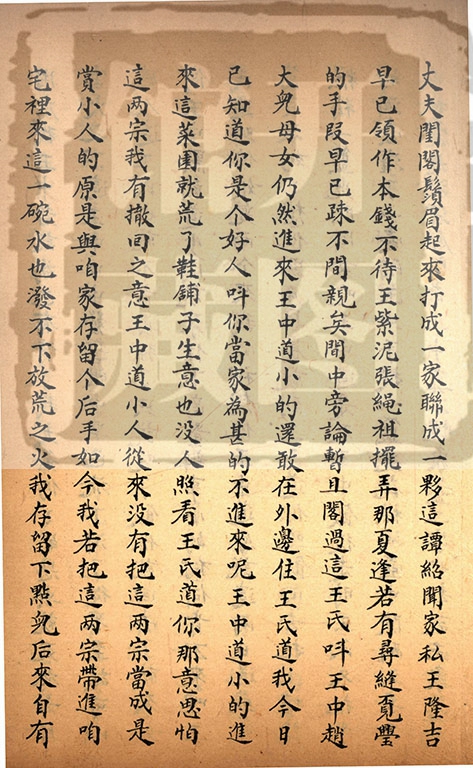 丈夫閨閣鬚眉起來打成一家聯成一夥這譚紹聞家私王隆吉
早已領作本錢不待王紫泥張繩祖擺弄那夏逢若有尋縫覓璺
的手段早已疎不間親矣間中旁論暫且閣過這王氏呌王中趙
大兒母女仍然進來王中道小的還敢在外邊住王氏道我今日
已知道你是个好人呌你當家為甚的不進來呢王中道小的進
來這菜園就荒了鞋舖子生意也没人照看王氏道你那意思怕
這两宗我有撤回之意王中道小人從來没有把這两宗當成是
賞小人的原是與咱家存留个后手如今我若把這两宗帶進咱
宅裡來這一碗水也潑不下放荒之火我存留下點兒后來自有